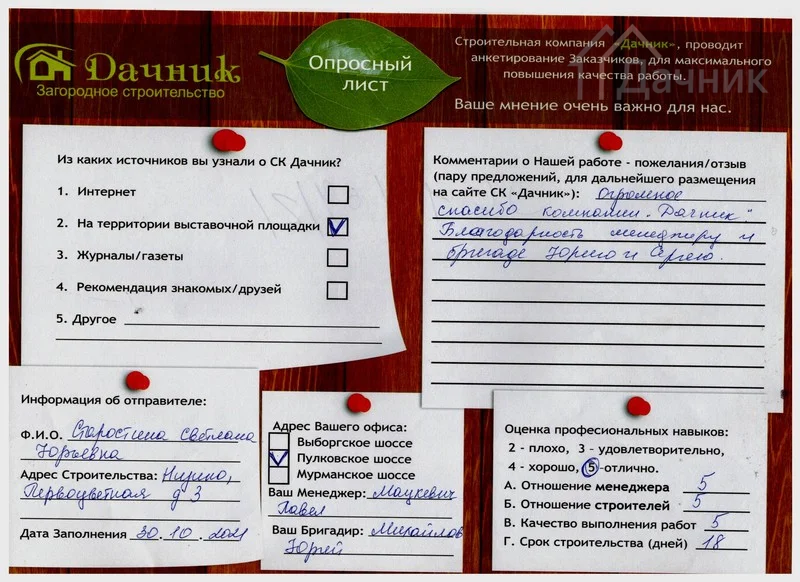 Дачник
Загородное строительство
Опросный
лист
Строительная компания «Дачник», проводит
анкетирование Заказчиков, для максимального
повышения качества работы.
Ваше мнение очень важно для нас.
Дачник
Из каких источников вы узнали о СК Дачник?
1. Интернет
2. На территории выставочной площадки
3. Журналы/газеты
4. Рекомендация знакомых/друзей
5. Другое
Комментарии о Нашей работе - пожелания/отзыв
(пару предложений, для дальнейшего размещения
на сайте СК «Дачник»): Огромное
спасибо компании "Дачник"
Благодарность менеджеру и
бригаде Юрию и Сергею.
Информация об отправителе:
Ф.И.О. Старостина Светлана
Юрьевна
Адрес Строительства:
Первоцветная д 3
Дата Заполнения 30.10.2021
Адрес Вашего офиса:
Выборгское шоссе
Пулковское шоссе
Мурманское шоссе
Ваш Менеджер: Мацкевич
Павел
Ваш Бригадир: Михайлов
Юрий
Оценка профессиональных навыков:
2 - плохо, 3 - удовлетворительно,
4 - хорошо, 5 -отлично.
А. Отношение менеджера 5
Б. Отношение строителей 5
В. Качество выполнения работ 5
Г. Срок строительства (дней) 18